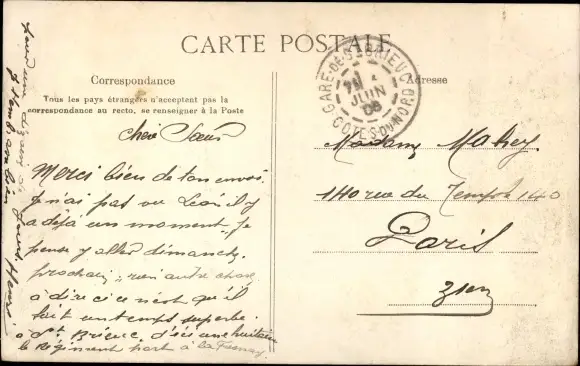 CARTE POSTALE
Correspondance
Tous les pays étrangers n'acceptent pas la
correspondance au recto, se renseigner à la Poste
Adresse
GARE-DE-ST-BRIEUC
JUIN
08
COTES-DU-NORD
Chère Soeur
Merci bien de ton envoi.
Je n'ai pas vu Leon il y
a déjà un moment, Je
pense y aller dimanche
prochain, rien autre chose
à dire ici ce n'est qu'il
fait un temps superbe.
à St Brieuc, d'ici une huitaine
le Régiment part à la
Madame Mahey.
140 rue du Temple 140
Paris